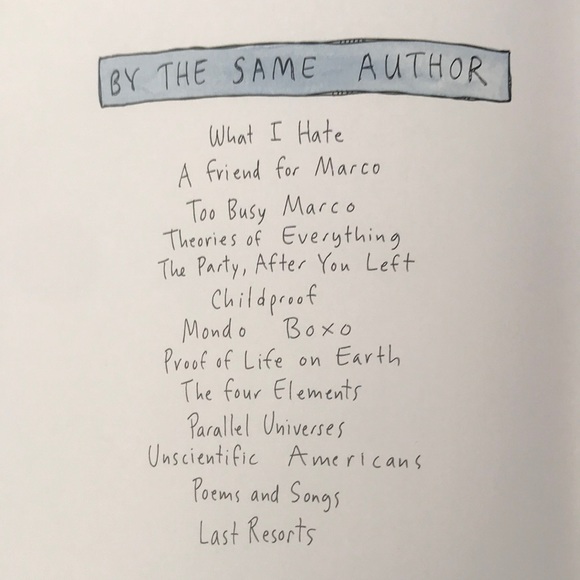 BY THE SAME AUTHOR
What I Hate
A Friend for Marco
Too Busy Marco
Theories of Everything
The Party, After You Left
Childproof
Mondo Boxo
Proof of Life on Earth
The Four Elements
Parallel Universes
Unscientific Americans
Poems and Songs
Last Resorts